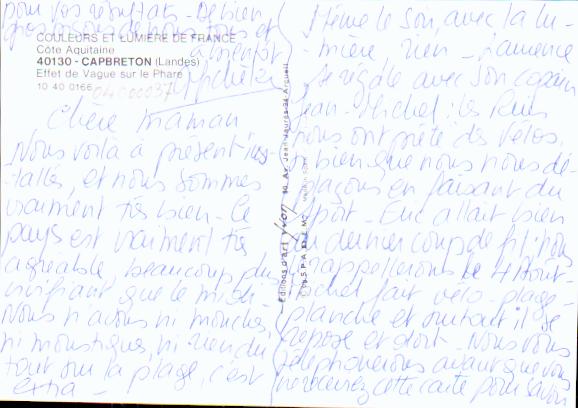 COULEURS ET LUMIÈRE DE FRANCE
Côte Aquitaine
40130 - CAPBRETON (Landes)
Effet de Vague sur le Phare
10 40 0166
Chère Maman
Nous voilà à présent ins-
-tallés, et nous sommes
vraiment très bien - Ce
pays est vraiment très
agréable beaucoup plus
vivifiant que le midi -
Nous n'avons ni mouches,
ni moustiques, ni rien du
tout sur la plage, c'est
extra -
Editions d'art yvon
Même le soir, avec la lu-
-mière, rien - Laurence
se régale avec son cousin
Jean-Michel; les
nous ont prêté des vélos,
si bien que nous nous dé-
-plaçons en faisant du
sport - Eric allait bien
au dernier coup de fil, nous
rappellerons le 4 Août -
Michel fait vélo - plage -
planche et surtout il se
repose et dort - Nous vous
téléphonerons avant que vous
receviez cette carte pour savoir
pour vos résultat - De bien
gros